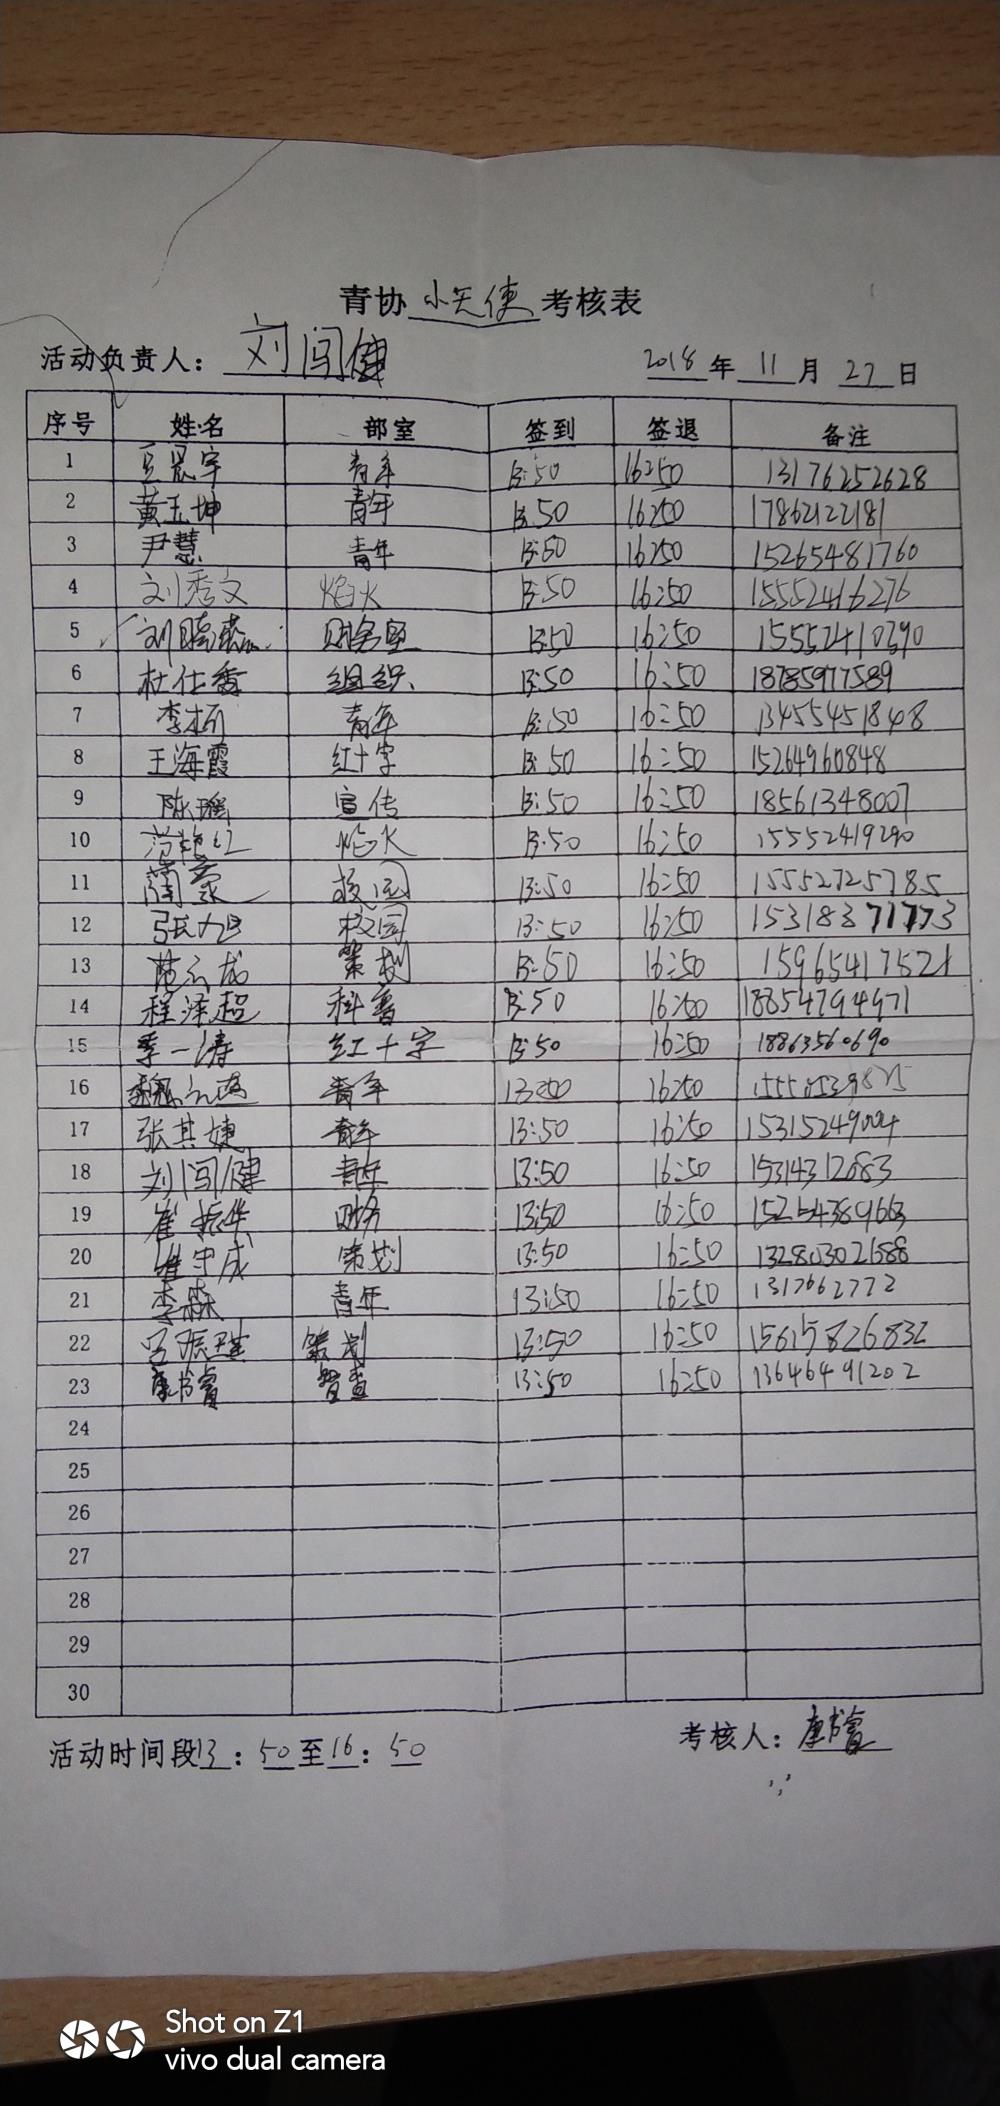 青协 小天使 考核表
活动负责人： 刘闯健 2018 年 11 月 27 日
序号 姓名 部室 签到 签退 备注
1 宇 青年 13:50 16:50 13176252628
2 黄玉坤 青年 13:50 16:50 17862122181
3 尹慧 青年 13:50 16:50 15265481760
4 刘秀文 焰火 13:50 16:50 15552416276
5 刘晓 财务 13:50 16:50 15552410390
6 杜仕香 组织 13:50 16:50 18785977589
7 李析 青年 13:50 16:50 13455451848
8 王海霞 红十字 13:50 16:50 15264960848
9 陈瑶 宣传 13:50 16:50 18561348007
10 范艳红 焰火 13:50 16:50 15552419290
11 蒙 校园 13:50 16:50 15552725785
12 张旭 校园 13:50 16:50 15318371773
13 范云龙 策划 13:50 16:50 15965417521
14 程泽超 科普 13:50 16:50 18854794971
15 季一涛 红十字 13:50 16:50 18863560690
16 青年 13:50 16:50
17 张其婕 青年 13:50 16:50 15315249004
18 刘闯健 青年 13:50 16:50 15314312683
19 崔振华 财务 13:50 16:50
20 守成 策划 13:50 16:50 13280302688
21 李森 青年 13:50 16:50 1317662772
22 吕振琪 策划 13:50 16:50 15615826832
23 康书睿 督查 13:50 16:50 13646491202
24
25
26
27
28
29
30
活动时间段13：50至16：50 考核人：康书睿
Shot on Z1
vivo dual camera